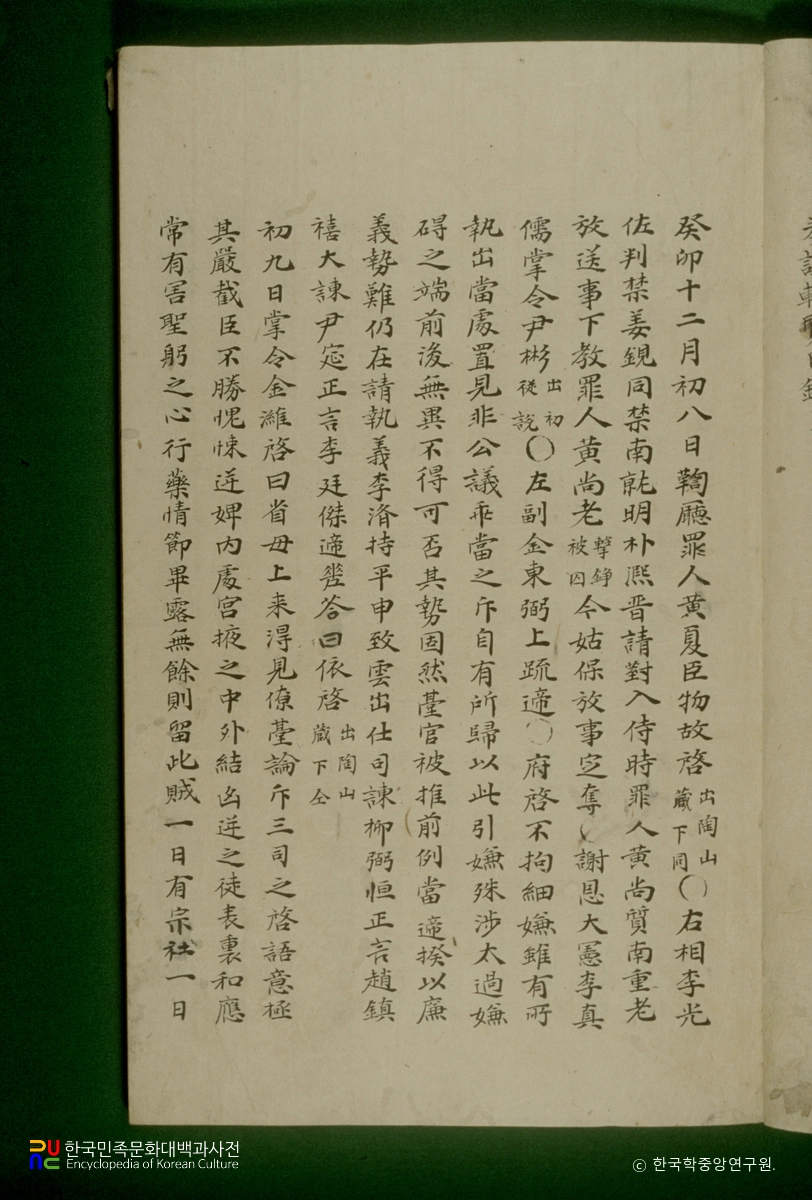 癸卯十二月初八日鞫廳罪人黃夏臣物故啓出陶山藏下同〇右相李光
佐判禁姜鋧同禁南就明朴熙晋請對入侍時罪人黃尚質南重老
放送事下教罪人黃尚老擊錚被囚今姑保放事定奪〇謝恩大憲李真
儒掌令尹彬出初從說〇左副金東弼上疏適〇府啓不拘細嫌雖有所
執出當處置見非公議乖當之斥自有所歸以此引嫌殊涉太過嫌
碍之端前後無異不得可否其勢固然臺官被推前例當遞揆以廉
義勢難仍在請執義李濟持平申致雲出仕司諫柳弼恒正言趙鎮
禧大諫尹㝎正言李廷傑適癹答曰依啓出陶山藏下仝
初九日掌令金濰啓曰省母上来淂見僚臺論斥三司之啓語意極
其嚴截臣不勝愧悚逆婢內處宮掖之中外結凶逆之徒表裏和應
常有害聖躬之心行藥情節畢露無餘則留此賊一日有宗社一日
한국민족문화대백과사전
Encyclopedia of Korean Culture
© 한국학중앙연구원.